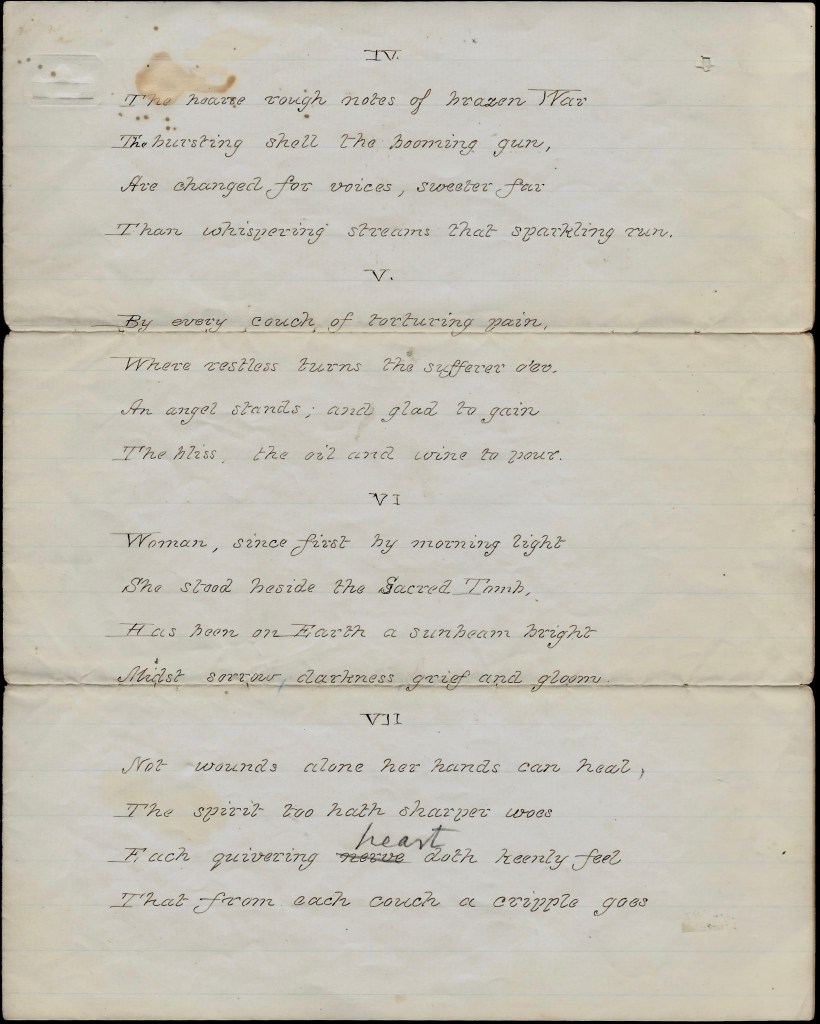 IV.
The hoarse rough notes of brazen War
The bursting shell the booming gun,
Are changed for voices, sweeter far
Than whispering streams that sparkling run.
V.
By every couch of torturing pain,
Where restless turns the sufferer o'er.
An angel stands; and glad to gain
The bliss, the oil and wine to pour.
VI
Woman, since first by morning light
She stood beside the Sacred Tomb,
Has been on Earth a sunbeam bright
Midst sorrow, darkness, grief and gloom.
VII
Not wounds alone her hands can heal,
The spirit too hath sharper woes
heart
Each quivering nerve doth keenly feel
That from each couch a cripple goes